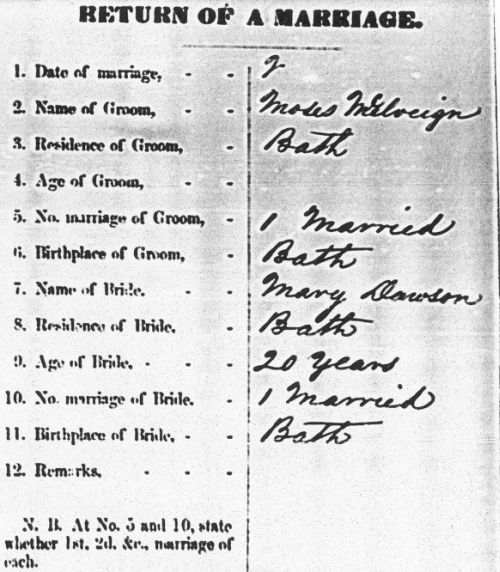 RETURN OF A MARRIAGE.
1. Date of marriage, - - 2
2. Name of Groom, - - Moses McElveign
3. Residence of Groom, - Bath
4. Age of Groom, - -
5. No. marriage of Groom, - 1 Married
6. Birthplace of Groom, - Bath
7. Name of Bride. - - Mary Dawson
8. Residence of Bride. - Bath
9. Age of Bride. - - - 20 years
10. No. marriage of Bride. - 1 Married
11. Birthplace of Bride. - - Bath
12. Remarks. - - -
N. B. At No. 5 and 10, state
whether 1st, 2d. &c., marriage of
each.